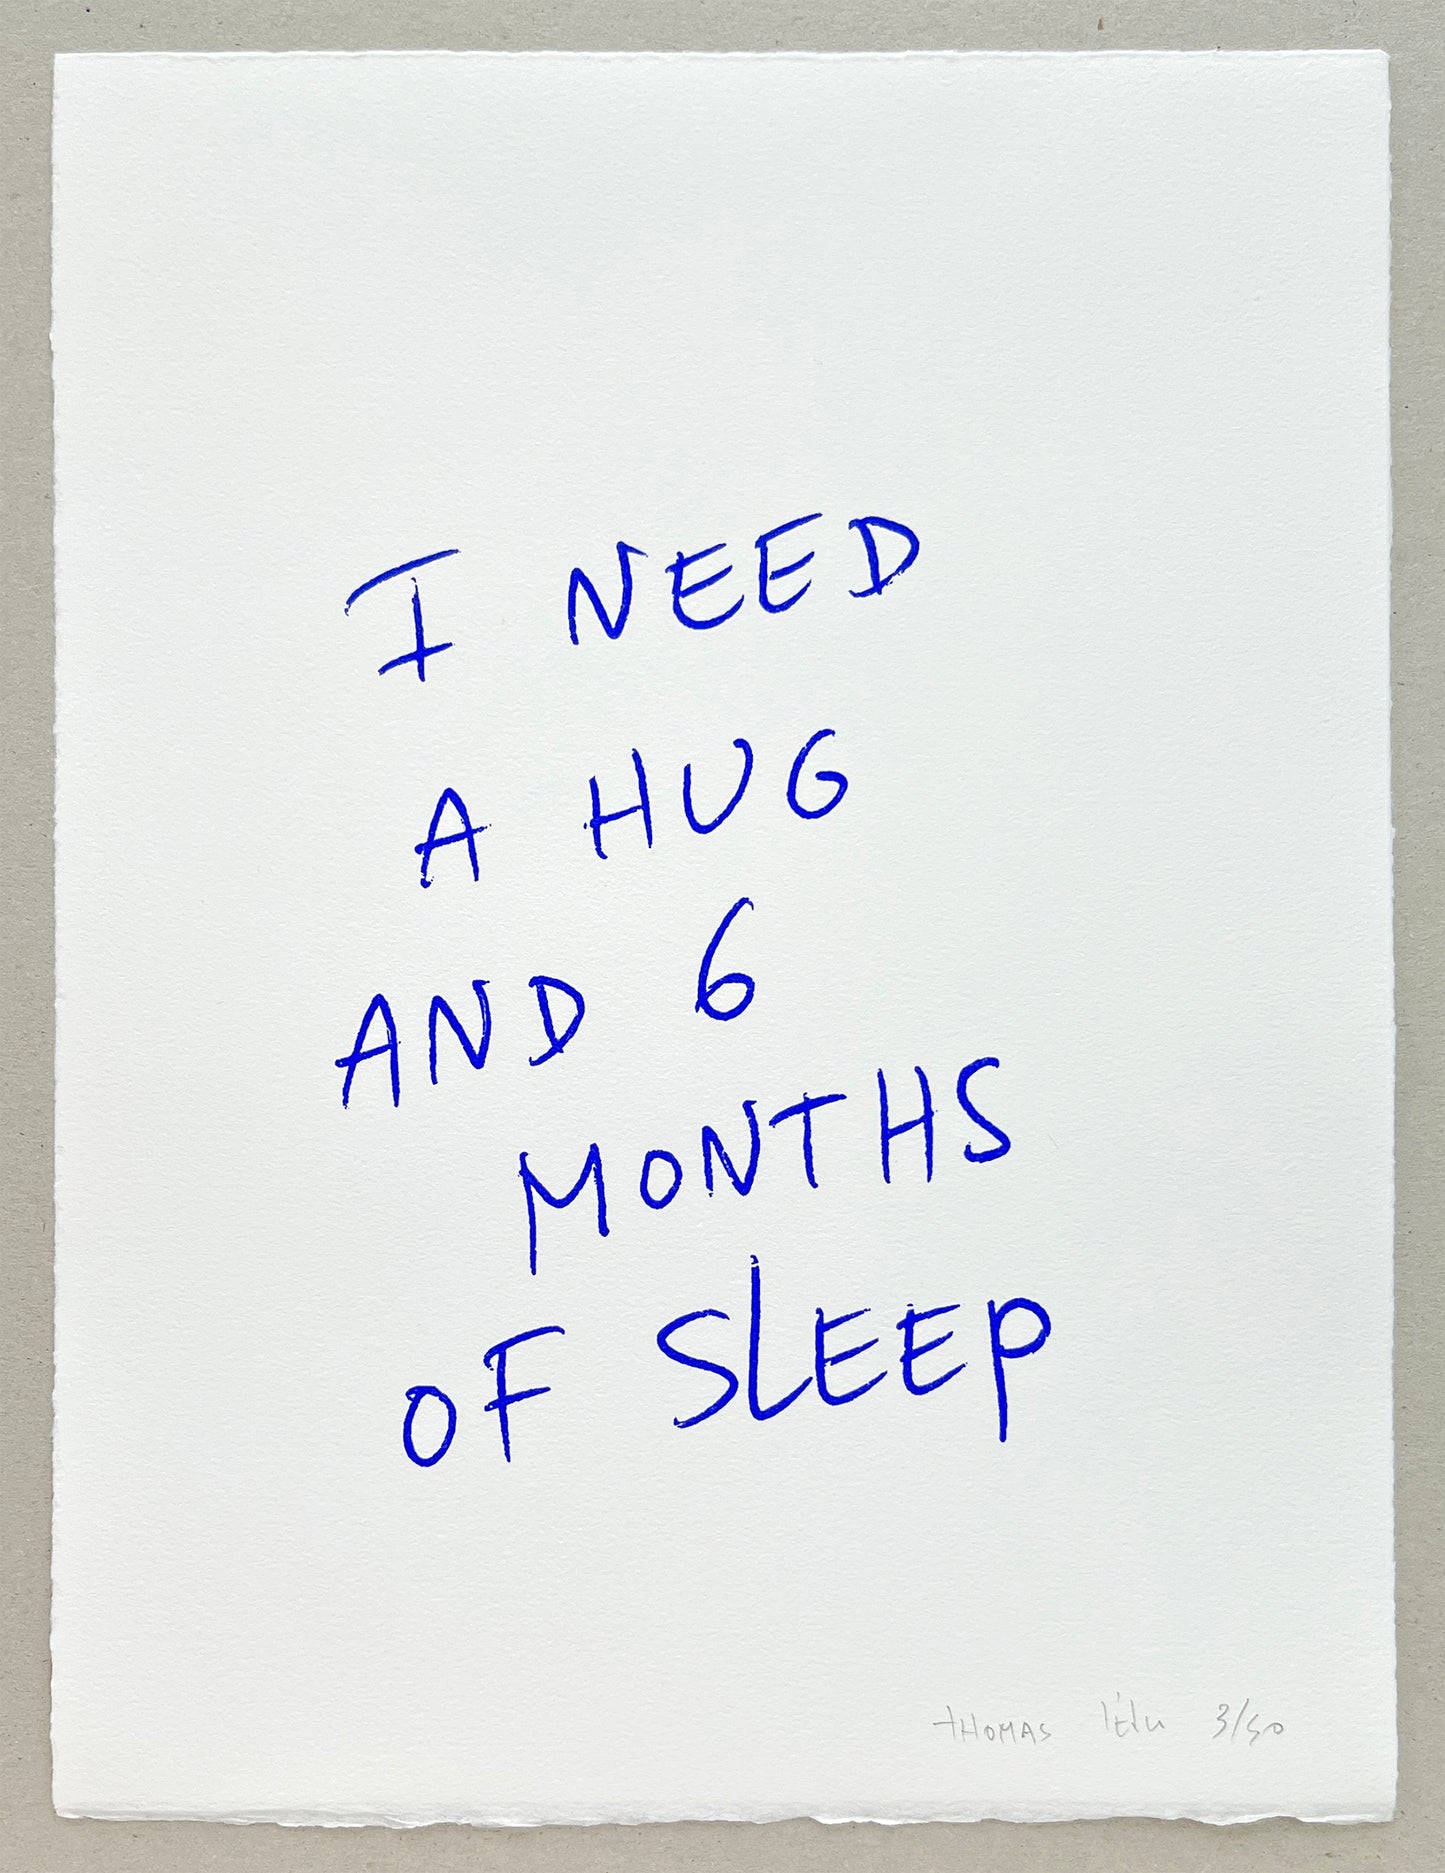 I NEED
A HUG
AND 6
MONTHS
OF SLEEP
THOMAS Lélu 3/50